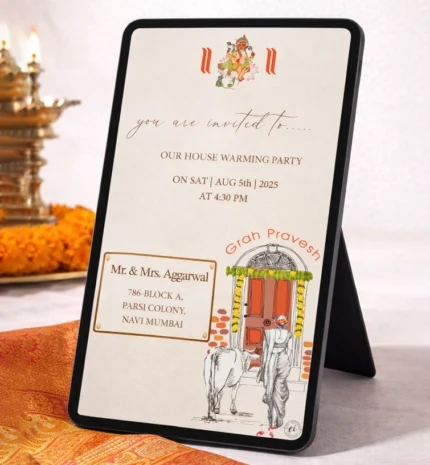 you are invited to.....
OUR HOUSE WARMING PARTY
ON SAT | AUG 5th | 2025
AT 4:30 PM
Grah Pravesh
Mr. & Mrs. Aggarwal
786-BLOCK A,
PARSI COLONY,
NAVI MUMBAI